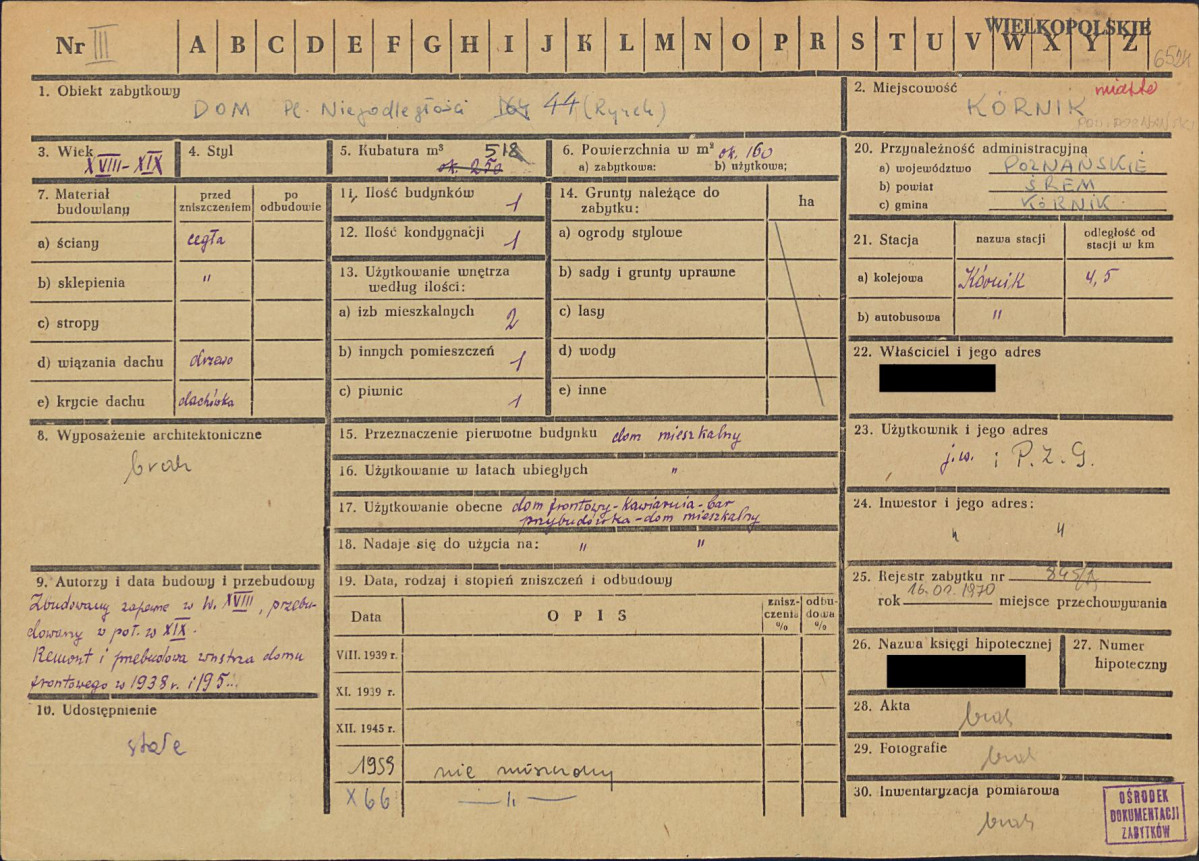 WIELKOPOLSKIE
Nr III A B C D E F G H I J K L M N O P R S T U V W X Y Z
1. Obiekt zabytkowy
DOM Pl. Niepodległości 44 (Rynek)
2. Miejscowość miasto
KÓRNIK
3. Wiek
XVIII-XIX
4. Styl
5. Kubatura m³ 518
ok. 250
6. Powierzchnia w m² ok. 160
a) zabytkowa: b) użytkowa;
7. Materiał budowlany
przed zniszczeniem
po odbudowie
a) ściany cegła
b) sklepienia "
c) stropy
d) wiązania dachu drzewo
e) krycie dachu dachówka
8. Wyposażenie architektoniczne
brak
9. Autorzy i data budowy i przebudowy
Zbudowany zapewne w w. XVIII, przebu-
dowany w poł. w XIX.
Remont i przebudowa wnętrza domu
frontowego w 1938 r. i 195
10. Udostępnienie
stałe
11. Ilość budynków 1
12. Ilość kondygnacji 1
13. Użytkowanie wnętrza
według ilości:
a) izb mieszkalnych 2
b) innych pomieszczeń 1
c) piwnic 1
14. Grunty należące do
zabytku:
ha
a) ogrody stylowe
b) sady i grunty uprawne
c) lasy
d) wody
e) inne
15. Przeznaczenie pierwotne budynku dom mieszkalny
16. Użytkowanie w latach ubiegłych "
17. Użytkowanie obecne dom frontowy-kawiarnia-bar
przybudówka-dom mieszkalny
18. Nadaje się do użycia na: " "
19. Data, rodzaj i stopień zniszczeń i odbudowy
Data
OPIS
zniszczenia %
odbudowa %
VIII. 1939 r.
XI. 1939 r.
XII. 1945 r.
1959 nie niszczony
X 66 — " —
20. Przynależność administracyjna
a) województwo POZNAŃSKIE
b) powiat ŚREM
c) gmina KÓRNIK
21. Stacja
nazwa stacji
odległość od
stacji w km
a) kolejowa Kórnik 4,5
b) autobusowa "
22. Właściciel i jego adres
23. Użytkownik i jego adres
j.w. i P.Z.G.
24. Inwestor i jego adres:
" "
25. Rejestr zabytku nr 848/A
rok 16.01.1970 miejsce przechowywania
26. Nazwa księgi hipotecznej
27. Numer
hipoteczny
28. Akta
brak
29. Fotografie
brak
30. Inwentaryzacja pomiarowa
brak
OŚRODEK
DOKUMENTACJI
ZABYTKÓW